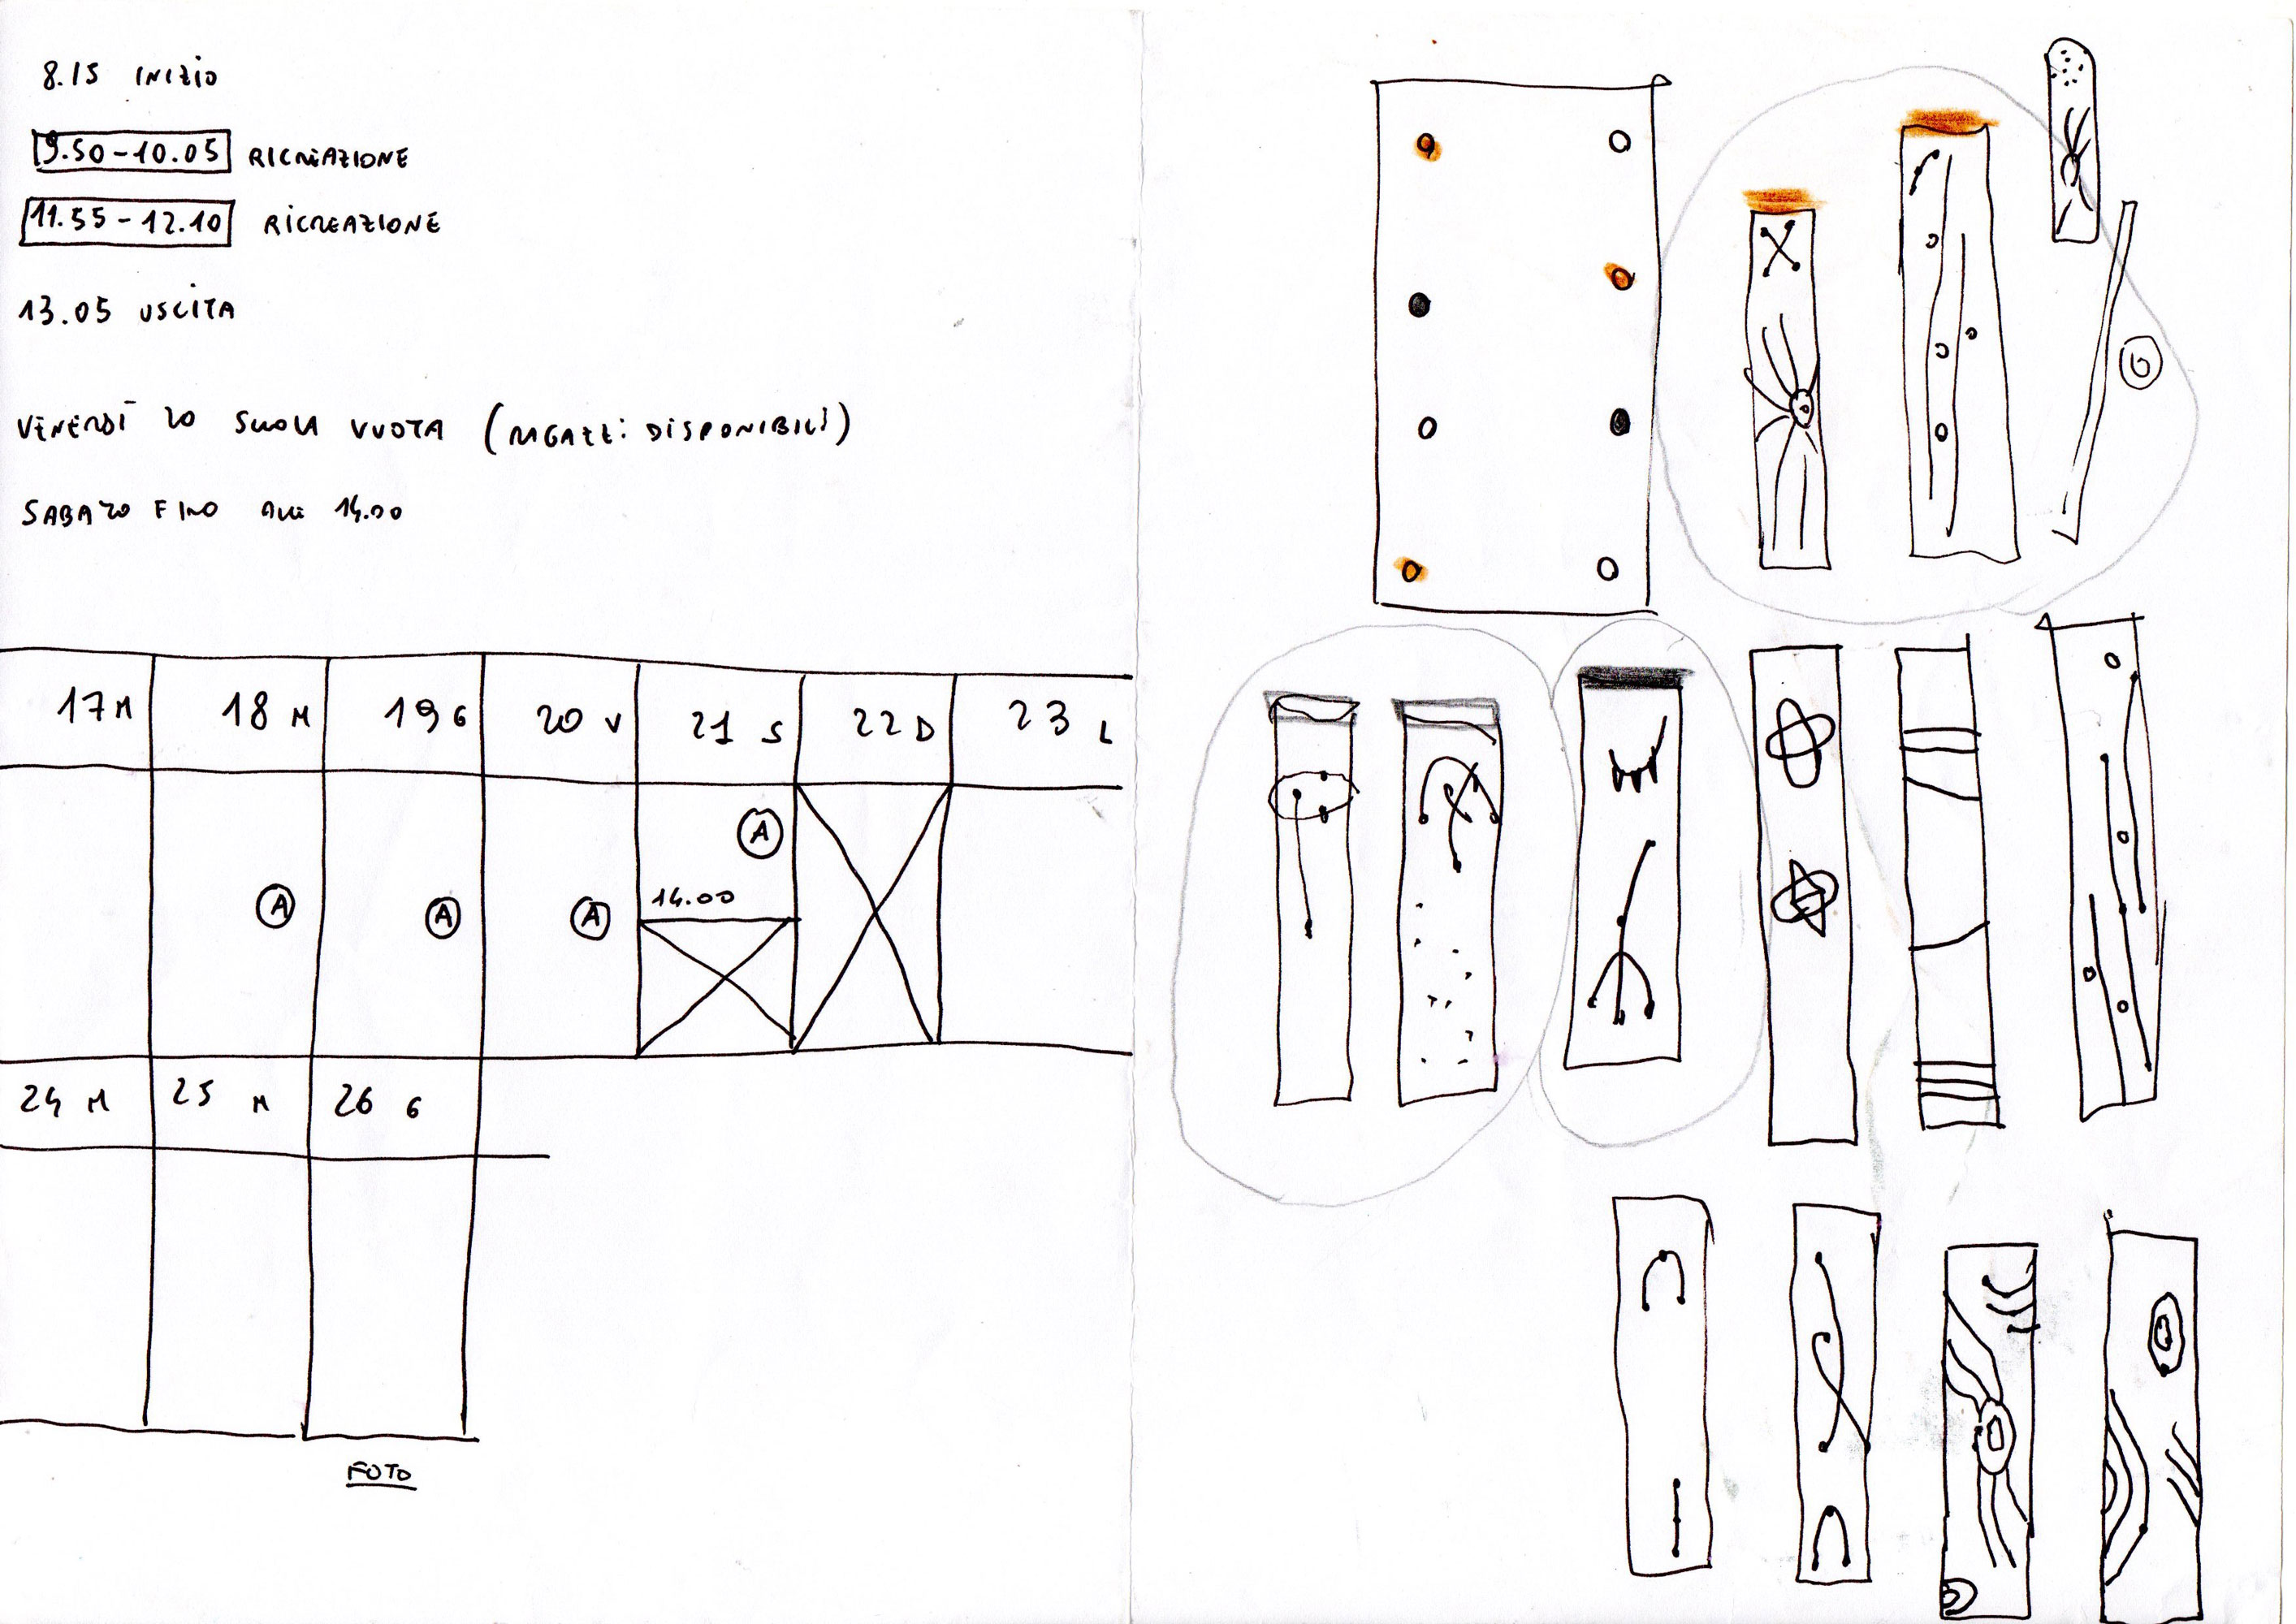 8.15 INIZIO
9.50-10.05 RICREAZIONE
11.55-12.10 RICREAZIONE
13.05 USCITA
VENERDÌ 20 SCUOLA VUOTA (RAGAZZI DISPONIBILI)
SABATO FINO ALLE 14.00
17 M 18 M 19 G 20 V 21 S 22 D 23 L
A A A A
14.00
24 M 25 M 26 G
FOTO